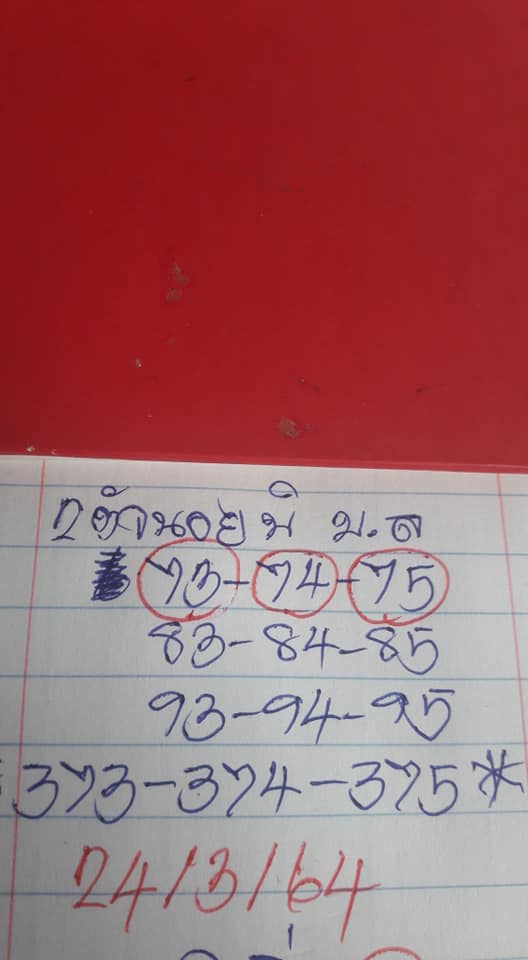 2ตัวนอยนิ บ.ล
73-74-75
83-84-85
93-94-95
373-374-375*
24/3/64